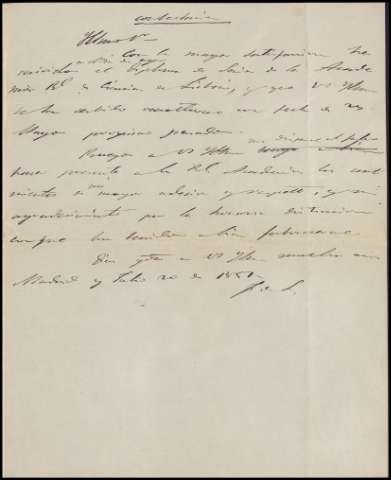 contestación
Illmo Sr
Con la mayor satisfaccion he
recibido el Diploma de Socio de la Acade
mia Rl. de Ciencias de Lisboa, y que VS Illma
se ha servido remitirme con fecha de 29
Mayo proximo pasado.
Ruego a VS Illma me dispense el favor
hacer presente a la Rl Academia los sent
imientos de mi mayor adesion y respeto, y mi
agradecimiento por la honrosa distincion
con que ha tenido a bien favorecerme.
Dios gde a VS Illma muchos años
Madrid y Julio 20 de 1851